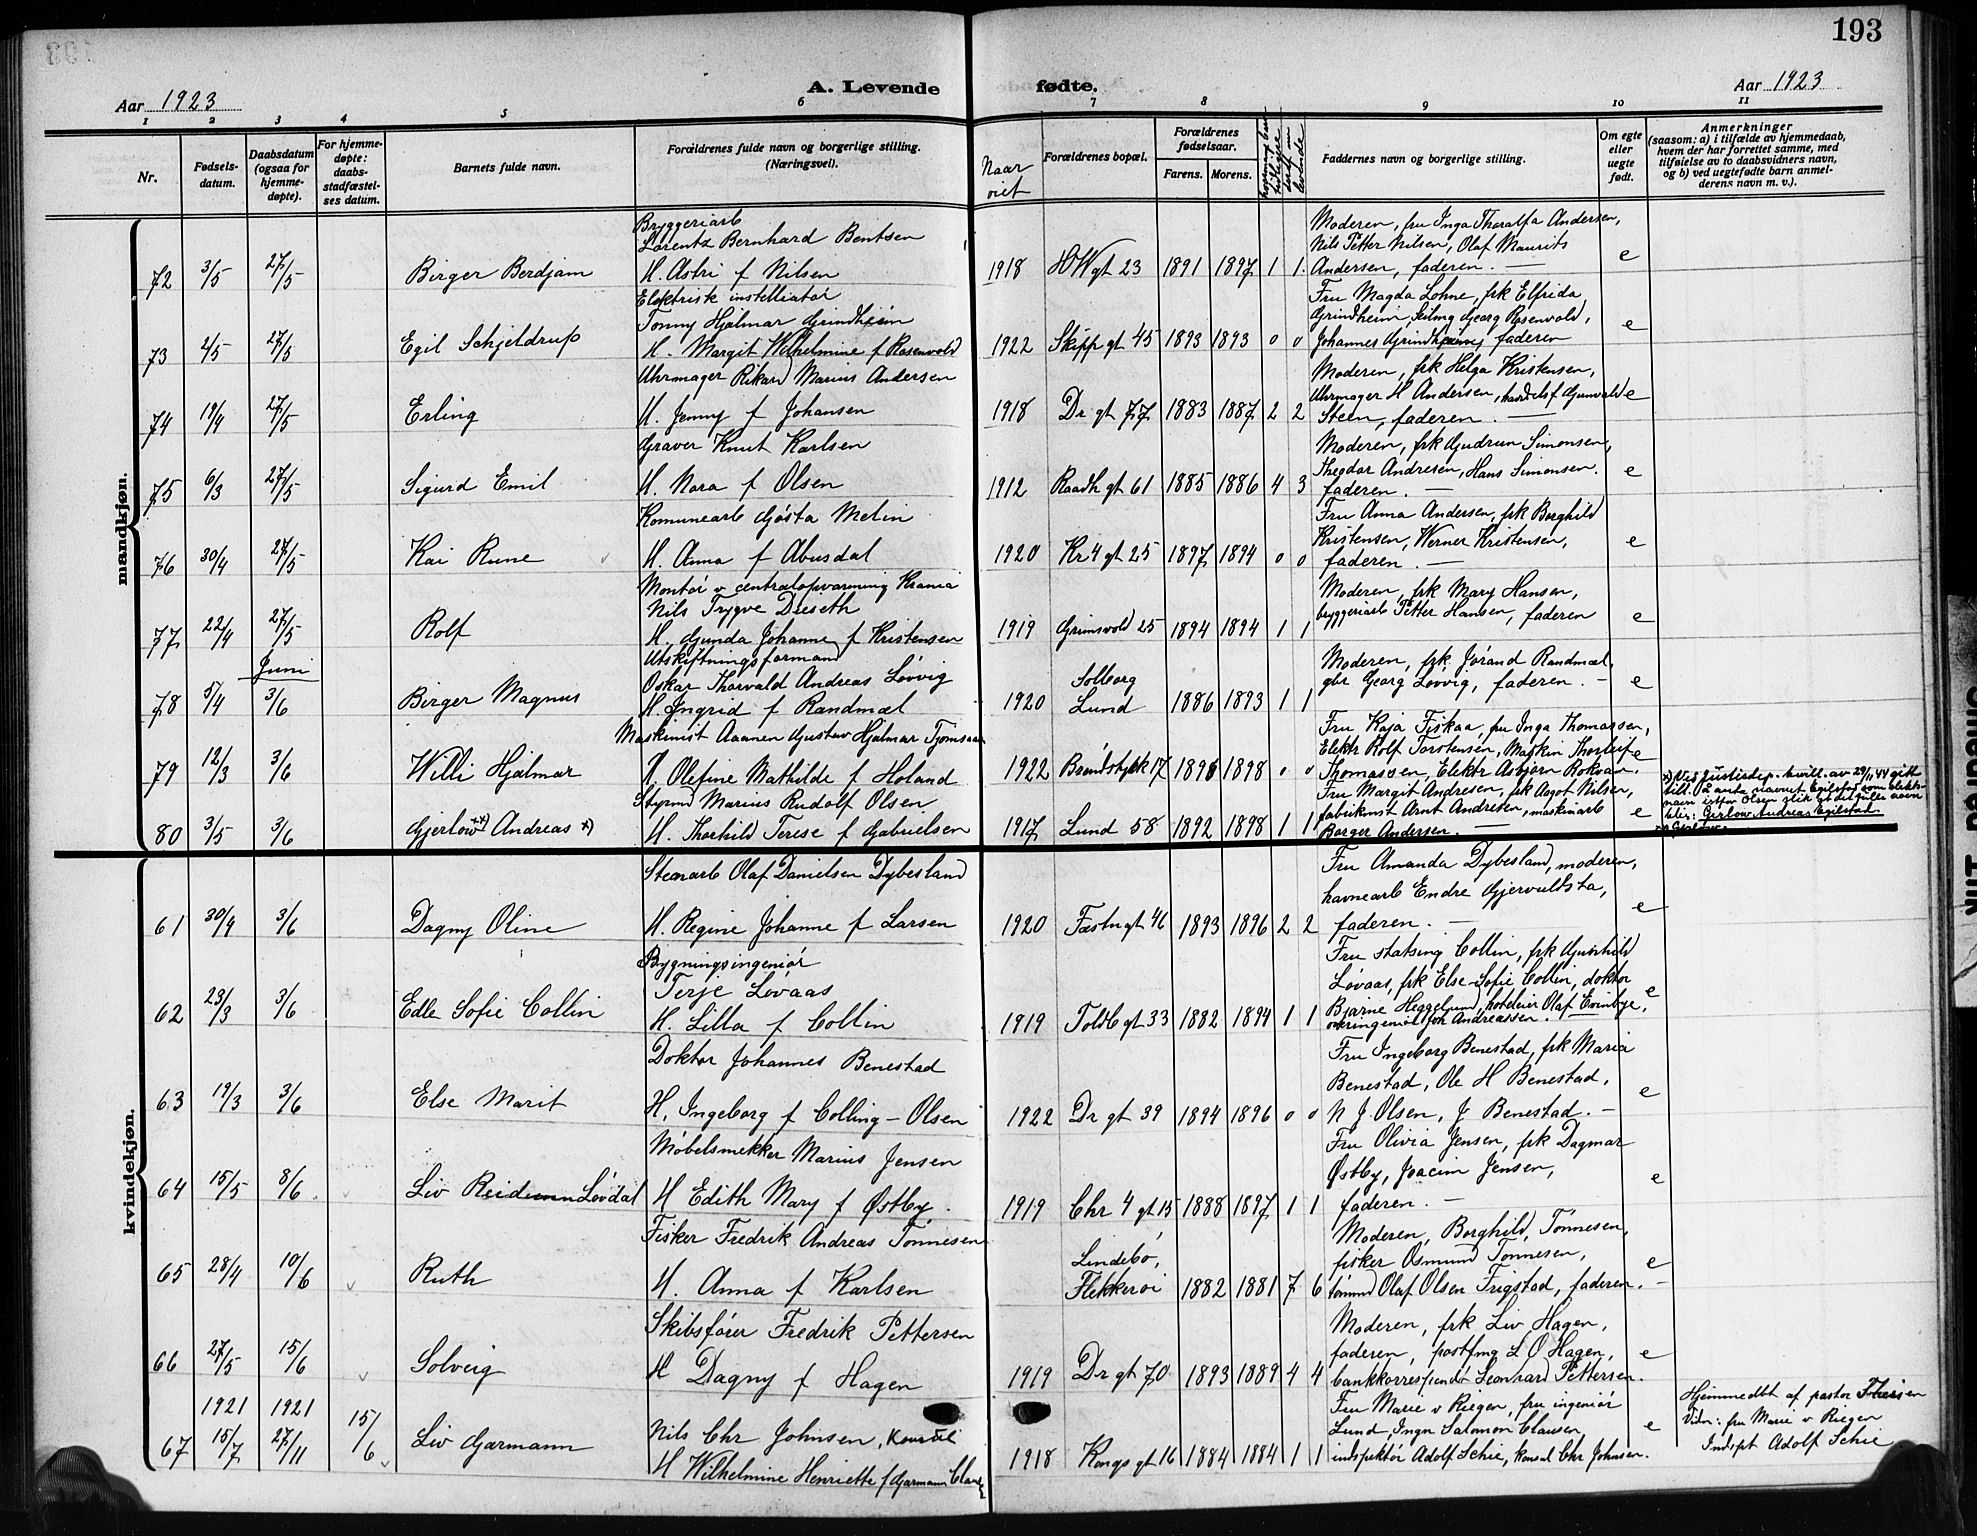 193
Aar 1923
A. Levende fødte.
Aar 1923
1 2 3 4 5 6 7 8 9 10 11
Nr.
Fødsels-
datum.
Daabsdatum
(ogsaa for
hjemme-
døpte).
For hjemme-
døpte:
daabs-
stadfæstel-
ses datum.
Barnets fulde navn.
Forældrenes fulde navn og borgerlige stilling.
(Næringsvei).
Naar
viet
Forældrenes bopæl.
Forældrenes
fødselsaar.
Farens. Morens.
Faddernes navn og borgerlige stilling.
Om egte
eller
uegte
født.
Anmerkninger
(saasom: a) i tilfælde av hjemmedaab,
hvem der har forrettet samme, med
tilføielse av to daabsvidners navn,
og b) ved uegtefødte barn anmel-
derens navn m. v.).
mandkjøn.
Bryggeriarb
Lorentz Bernhard Bentsen
72 3/5 27/5 Birger Berdjam H. Astri f Nilsen
1918 HWgt 23 1891 1897 1 1
Moderen, fru Inga Thoralfa Andersen,
Nils Petter Nilsen, Olaf Maurits
Andersen, faderen. — e
Elektrisk installatør
Tonny Hjalmar Grindheim
73 2/5 27/5 Egil Schjeldrup H. Margit Wilhelmine f Rosenvold
1922 Skipp gt 45 1893 1893 0 0
Fru Magda Lohne, frk Elfrida
Grindheim, Georg Rosenvold,
Johannes Grindheim, faderen e
Uhrmager Rikard Marius Andersen
74 19/4 27/5 Erling H. Jenny f Johansen
1918 Dr gt 77 1883 1887 2 2
Moderen, frk Helga Kristensen,
Uhrmager H Andersen, handelsf Gunvald
Steen, faderen. — e
Graver Knut Karlsen
75 6/3 27/5 Sigurd Emil H. Nora f Olsen
1912 Raadh gt 61 1885 1886 4 3
Moderen, frk Gudrun Simonsen,
Theodor Andresen, Hans Simonsen.
faderen. — e
Komunearb Gøsta Melin
76 30/4 27/5 Kai Rune H. Anna f Abusdal
1920 Kr 4 gt 25 1897 1894 0 0
Fru Anna Andersen, frk Borghild
Kristensen, Werner Kristensen,
faderen. — e
Montør v centralopvarmning Krania
Nils Trygve Dreseth
77 22/4 27/5 Rolf H. Gunda Johanne f Kristensen
1919 Grimsvold 25 1894 1894 1 1
Moderen, frk Mary Hansen,
bryggeriarb Petter Hansen, faderen e
Juni
Utskiftningsformand
Oskar Thorvald Andreas Løvvig
78 5/4 3/6 Birger Magnus H. Ingrid f Randmæl
1920 Solborg
Lund 1886 1893 1 1
Moderen, frk. Jørand Randmæl,
gbr Georg Løvvig, faderen. — e
Maskinist Aanen Gustav Hjalmar Tjomsaa
79 12/3 3/6 Willi Hjalmar H. Olefine Mathilde f Holand
1922 Brøndstykk 17 1896 1898 0 0
Fru Kaja Fiskaa, fru Inga Thomassen,
Elektr Rolf Torstensen, Maskin Thorleif
Thomassen, Elektr Asbjørn Rokvan. e
Styrmd Marius Rudolf Olsen
80 3/5 3/6 Gjerlow xx) Andreas x) H. Thorhild Terese f Gabrielsen
1917 Lund 58 1892 1898 1 1
Fru Margit Andresen, frk Aagot Nilsen,
fabrikmst Arnt Andresen, maskinarb
Borger Andersen. — e
x) Ved Justisdep. bevill. av 29/11 44 gitt
till. t. å anta navnet Egilstad som slekts-
navn istfor Olsen slik at det fulle navn
blir: Gerlow Andreas Egilstad.
kvindekjøn.
Stenarb Olaf Danielsen Dybesland
61 30/4 3/6 Dagny Oline H. Regine Johanne f Larsen
1920 Fæstn gt 46 1893 1896 2 2
Fru Amanda Dybesland, moderen,
havnearb Endre Gjervuldsta,
faderen. — e
Bygningsingeniør
Terje Løvaas
62 23/3 3/6 Edle Sofie Collin H. Lilla f Collin
1919 Toldb gt 33 1882 1894 1 1
Fru Statsing Collin, frk Gunhild
Løvaas, frk Else-Sofie Collin, doktor
Bjarne Heggelund, hoteleier Olaf Evinbye,
overingeniør Joh Andreassen. e
Doktor Johannes Benestad
63 19/3 3/6 Else Marit H. Ingeborg f Colling-Olsen
1922 Dr gt 39 1894 1896 0 0
Fru Ingeborg Benestad, frk Maria
Benestad, Ole H Benestad,
N J Olsen, J Benestad. — e
Møbelsnekker Marius Jensen
64 15/5 8/6 Liv Reidunn Løvdal H Edith Mary f Østby
1919 Chr 4 gt 15 1888 1897 1 1
Fru Olivia Jensen, frk Dagmar
Østby, Joacim Jensen,
faderen. — e
Fisker Fredrik Andreas Tønnesen
65 28/4 10/6 Ruth H. Anna f Karlsen
Lindebø,
Flekkerøi 1882 1881 7 6
Moderen, Borghild Tønnesen,
fisker Osmund Tønnesen,
tømmd Olaf Olsen Frigstad, faderen. — e
Skibsfører Fredrik Pettersen
66 27/5 15/6 Solveig H Dagny f Hagen
1919 Dr gt 70 1893 1889 4 4
Moderen, frk Liv Hagen,
faderen, postfmg L O Hagen,
bankkorrespondt Leonhard Pettersen. e
1921 1921
67 15/7 27/11 15/6 Liv Garmann Nils Chr Johnsen, Konsul
H Wilhelmine Henriette f Garmann Clausen
1918 Kongs gt 16 1884 1884 1 1
Fru Marie v Riegen, fru ingeniør
Lund, Ingn Salomon Clausen
indspektør Adolf Schie, konsul Chr Johnsen. e
Hjemmedbt af pastor
Vidn: fru Marie v Riegen
Indspt Adolf Schie